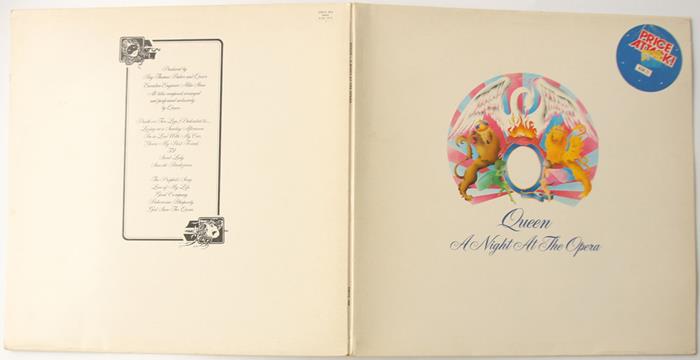 Produced by
Roy Thomas Baker and Queen
Executive Engineer Mike Stone
All titles composed, arranged
and performed exclusively
by Queen.
Death on Two Legs (Dedicated to......
Lazing on a Sunday Afternoon
I'm in Love With My Car
You're My Best Friend
'39
Sweet Lady
Seaside Rendezvous
The Prophet's Song
Love of My Life
Good Company
Bohemian Rhapsody
God Save The Queen
PRICE
ATTACK!
Queen
A Night At The Opera